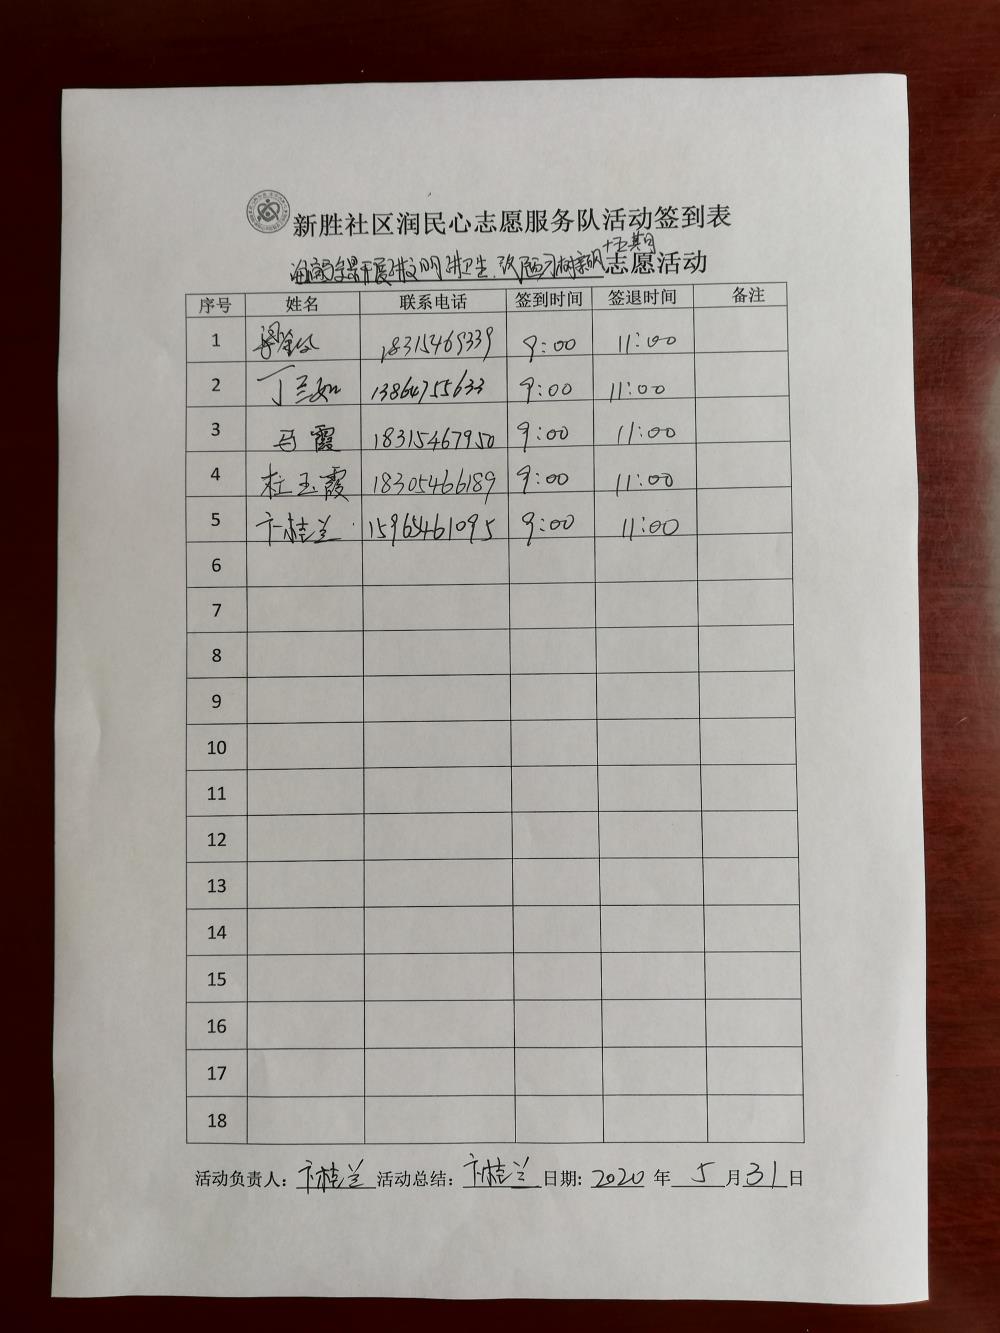 新胜社区润民心志愿服务队活动签到表
十五期
开展讲文明讲卫生、改陋习树新风志愿活动
序号 姓名 联系电话 签到时间 签退时间 备注
1 18315469339 9:00 11:00
2 丁兰如 13864755633 9:00 11:00
3 马霞 18315467950 9:00 11:00
4 杜玉霞 18305466189 9:00 11:00
5 卞桂兰 15965461095 9:00 11:00
6
7
8
9
10
11
12
13
14
15
16
17
18
活动负责人：卞桂兰 活动总结：卞桂兰 日期：2020年5月31日